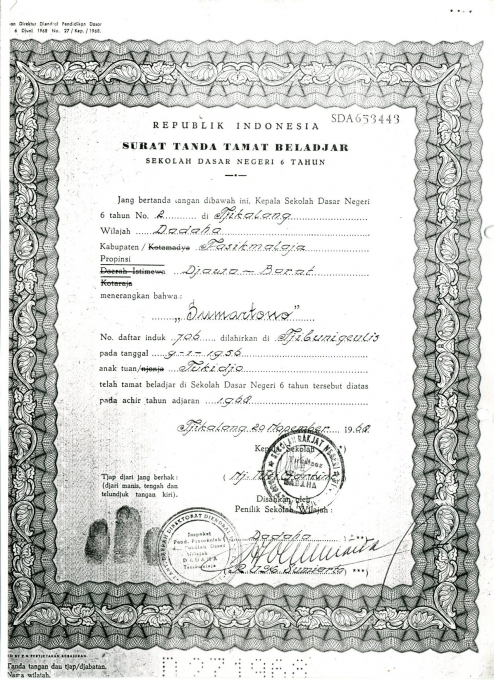 an Direktur Djendral Pendidikan Dasar
6 Djuni 1968 No. 27/Kep./1968.
SDA653443
REPUBLIK INDONESIA
SURAT TANDA TAMAT BELADJAR
SEKOLAH DASAR NEGERI 6 TAHUN
Jang bertanda tangan dibawah ini, Kepala Sekolah Dasar Negeri
6 tahun No. 2 di Tjikalang
Wilajah Dadaha
Kabupaten / Kotamadya Tasikmalaja
Propinsi
Daerah Istimewa Djawa - Barat
Kotaraja
menerangkan bahwa :
„Sumartono"
No. daftar induk 706 dilahirkan di Tjibunigeulis
pada tanggal 9-1-1956
anak tuan/njonja Tukidjo
telah tamat beladjar di Sekolah Dasar Negeri 6 tahun tersebut diatas
pada achir tahun adjaran 1968
Tjikalang 20 Nopember 1968
Kepala Sekolah
SEKOLAH RAKJAT NEGERI
DADAHA
Tjap djari jang berhak:
(djari manis, tengah dan
telundjuk tangan kiri).
Disahkan oleh:
Penilik Sekolah Wilajah:
Dadaha
Wilajah
DADAHA
Tasikmalaja
Sumiarto) ***)
Tanda tangan dan tjap/djabatan.
Nama wilajah.